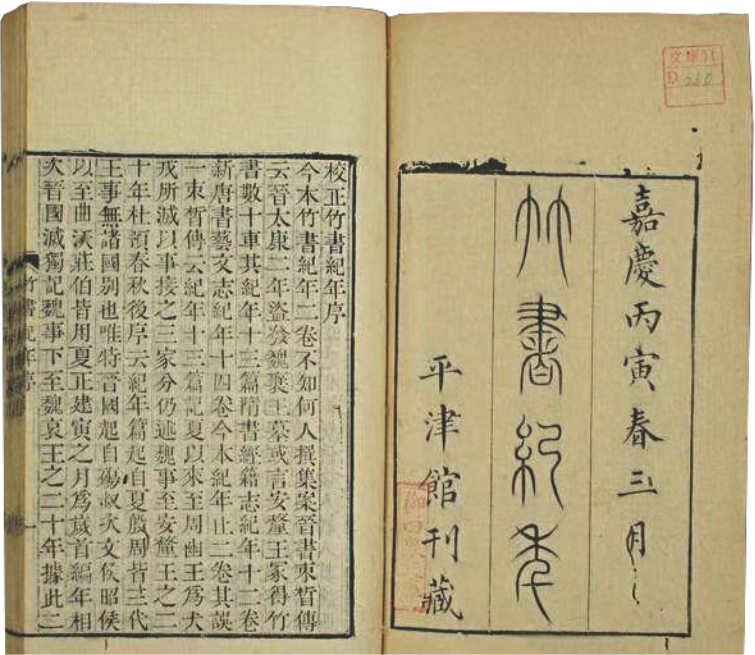 文庫11
D 260
嘉慶丙寅春三月
竹書紀年
平津館刊藏
校正竹書紀年序
今本竹書紀年二卷不知何人撰集案晉書束皙傳
云晉太康二年盜發魏襄王墓或言安釐王冢得竹
書數十車其紀年十三篇隋書經籍志紀年十二卷
新唐書藝文志紀年十四卷今本紀年止二卷其誤
一束皙傳云紀年十三篇記夏以來至周幽王爲犬
戎所滅以事接之三家分仍述魏事至安釐王之二
十年杜預春秋後序云紀年篇起自夏殷周皆三代
王事無諸國别也唯特晉國起自殤叔次文侯昭侯
以至曲沃莊伯皆用夏正建寅之月爲歲首編年相
次晉國滅獨記魏事下至魏哀王之二十年據此二
竹書紀年序 一